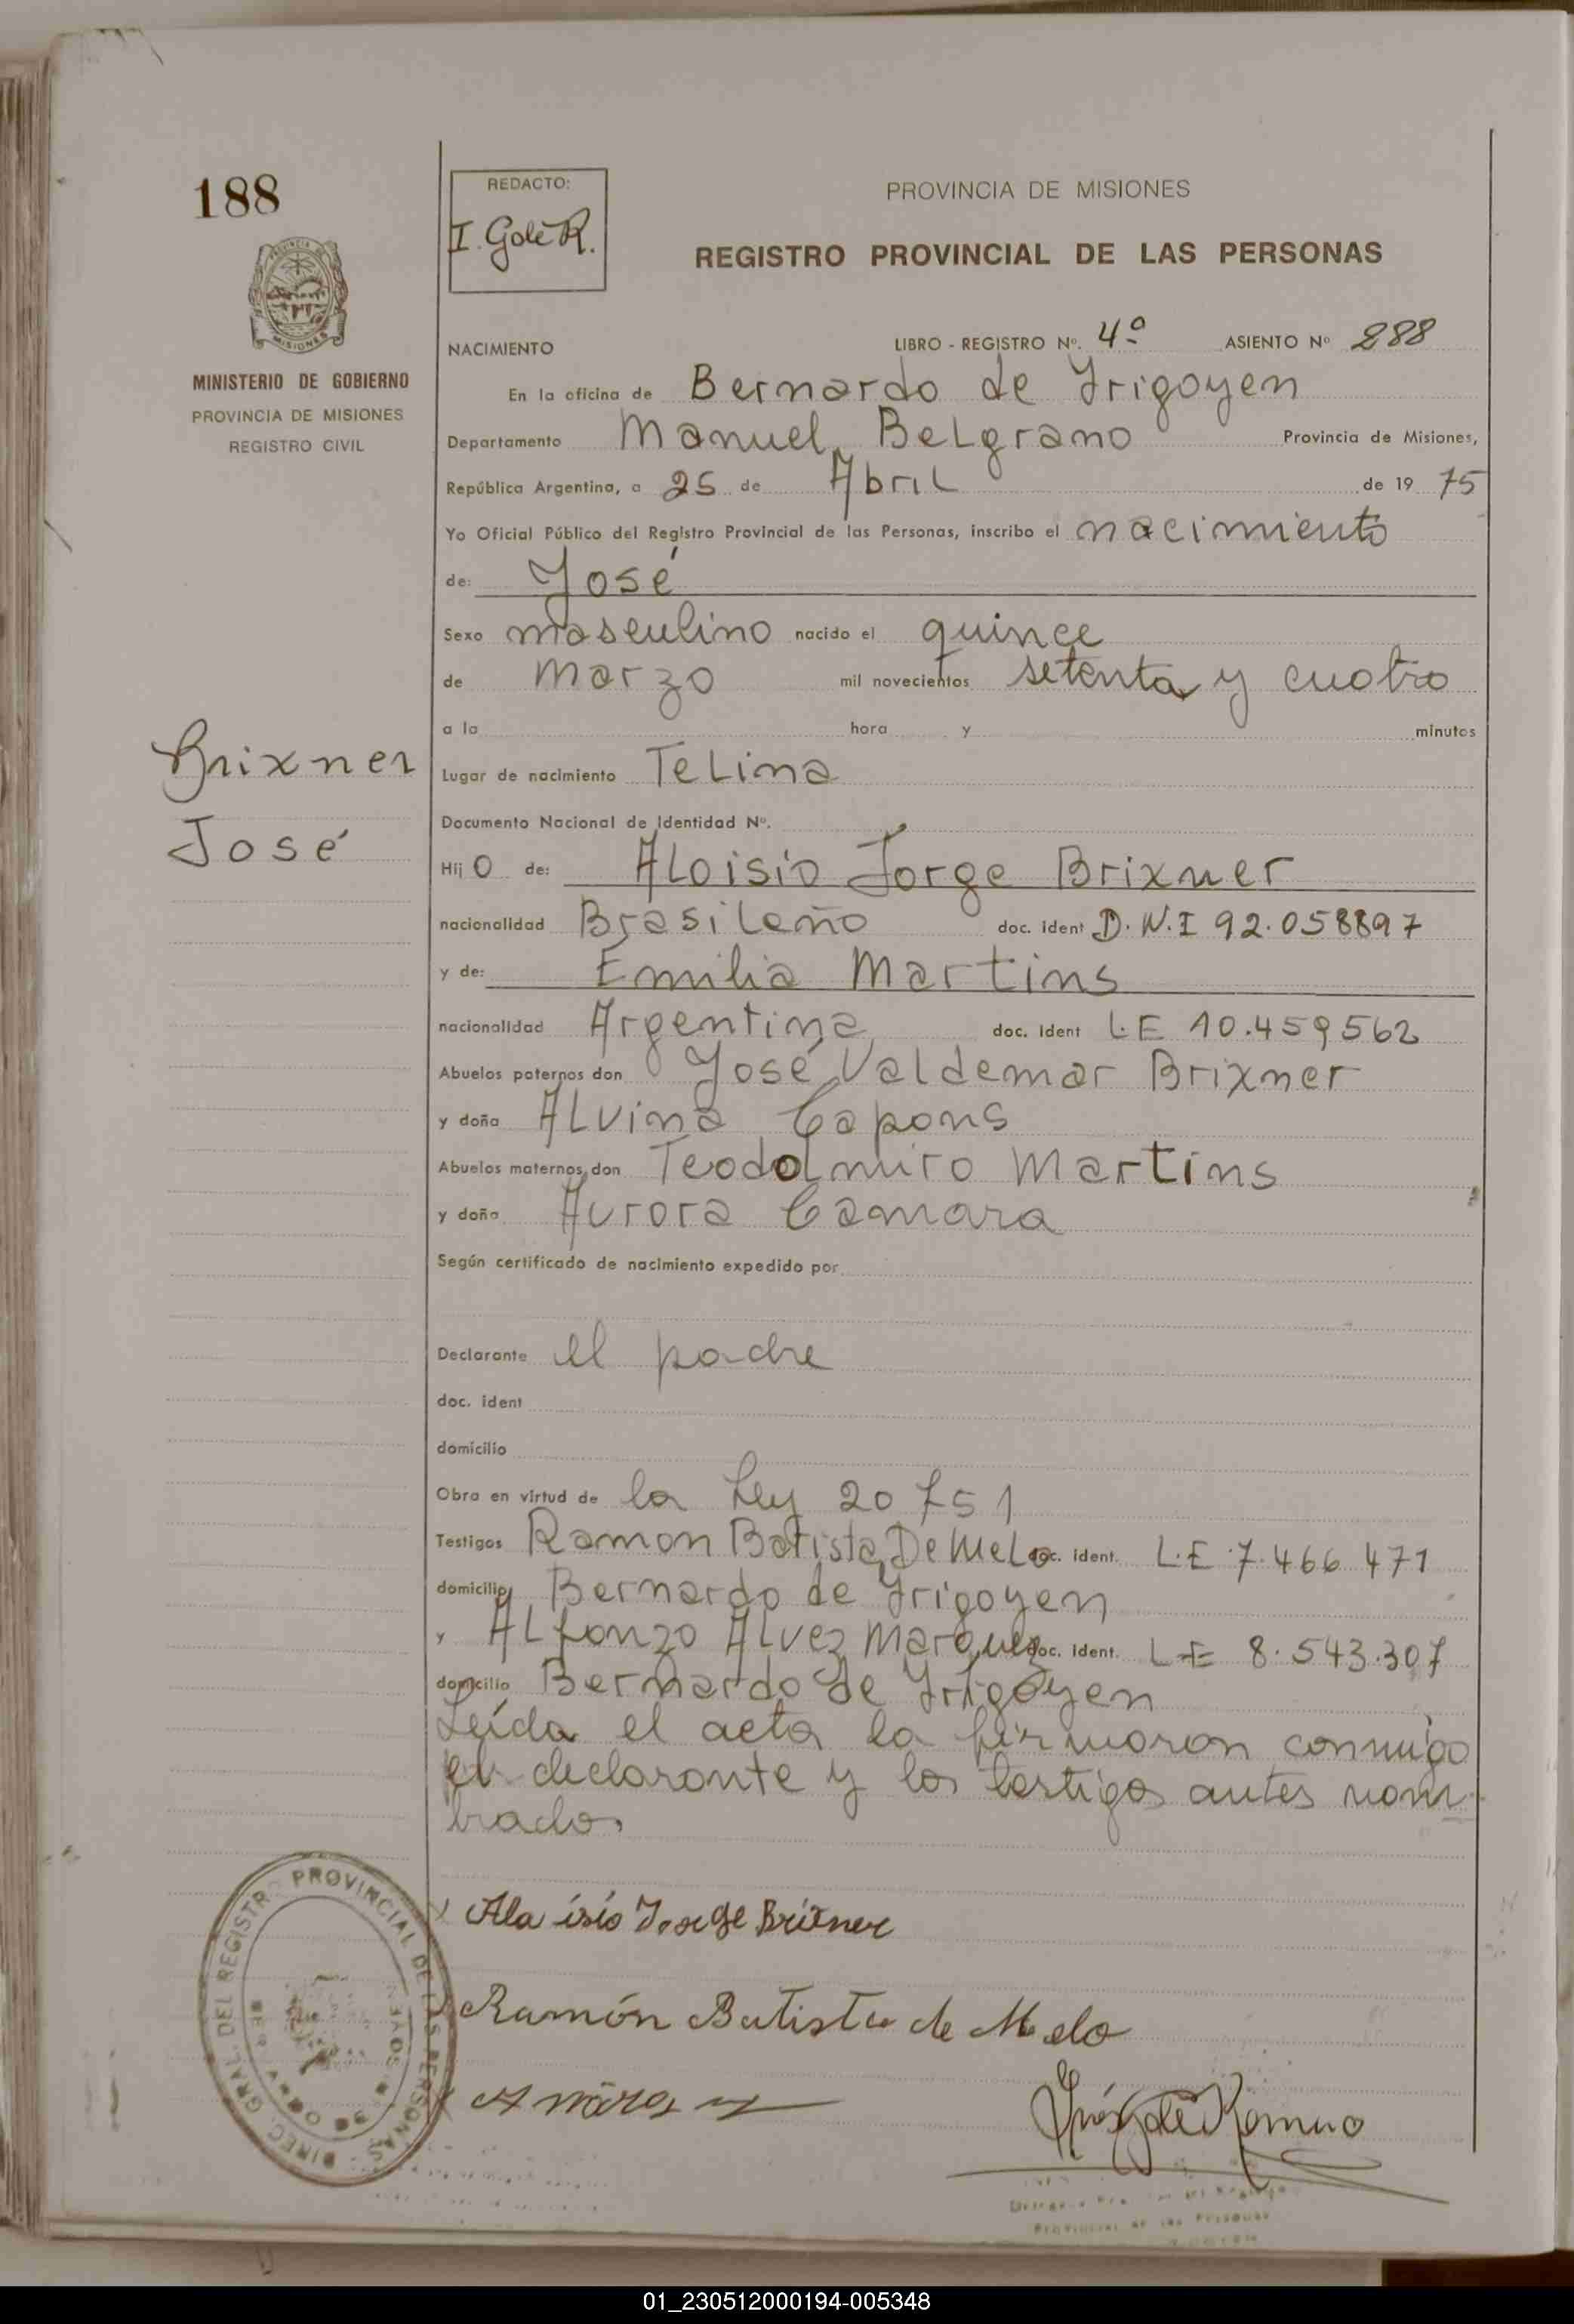 188
REDACTO:
I. Golé R.
PROVINCIA DE MISIONES
REGISTRO PROVINCIAL DE LAS PERSONAS
MISIONES
MINISTERIO DE GOBIERNO
PROVINCIA DE MISIONES
REGISTRO CIVIL
NACIMIENTO LIBRO - REGISTRO Nº. 4º ASIENTO Nº 288
En la oficina de Bernardo de Yrigoyen
Departamento Manuel Belgrano Provincia de Misiones,
República Argentina, a 25 de Abril de 19 75
Yo Oficial Público del Registro Provincial de las Personas, inscribo el nacimiento
de: José
Sexo masculino nacido el quince
de Marzo mil novecientos setenta y cuatro
a la hora y minutos
Brixner
José
Lugar de nacimiento Telina
Documento Nacional de Identidad Nº.
Hij O de: Aloisio Jorge Brixner
nacionalidad Brasileño doc. ident D.N.I 92.058897
y de: Emilia Martins
nacionalidad Argentina doc. ident L.E 10.459562
Abuelos paternos don José Valdemar Brixner
y doña Alvina Capons
Abuelos maternos don Teodolmiro Martins
y doña Aurora Camara
Según certificado de nacimiento expedido por
Declarante el padre
doc. ident
domicilio
Obra en virtud de la Ley 20751
Testigos Ramon Batista De Melo doc. ident. L.E 7.466 471
domicilio Bernardo de Yrigoyen
y Alfonzo Alvez Marquez doc. ident. LE 8.543.307
domicilio Bernardo de Yrigoyen
Leída el acta la firmaron conmigo
el declarante y los testigos antes nom
brados
Alaisio Jorge Brixner
Ramón Batista de Melo
Inés Golé Romero
DIREC. GRAL. DEL REGISTRO PROVINCIAL DE LAS PERSONAS
01_230512000194-005348